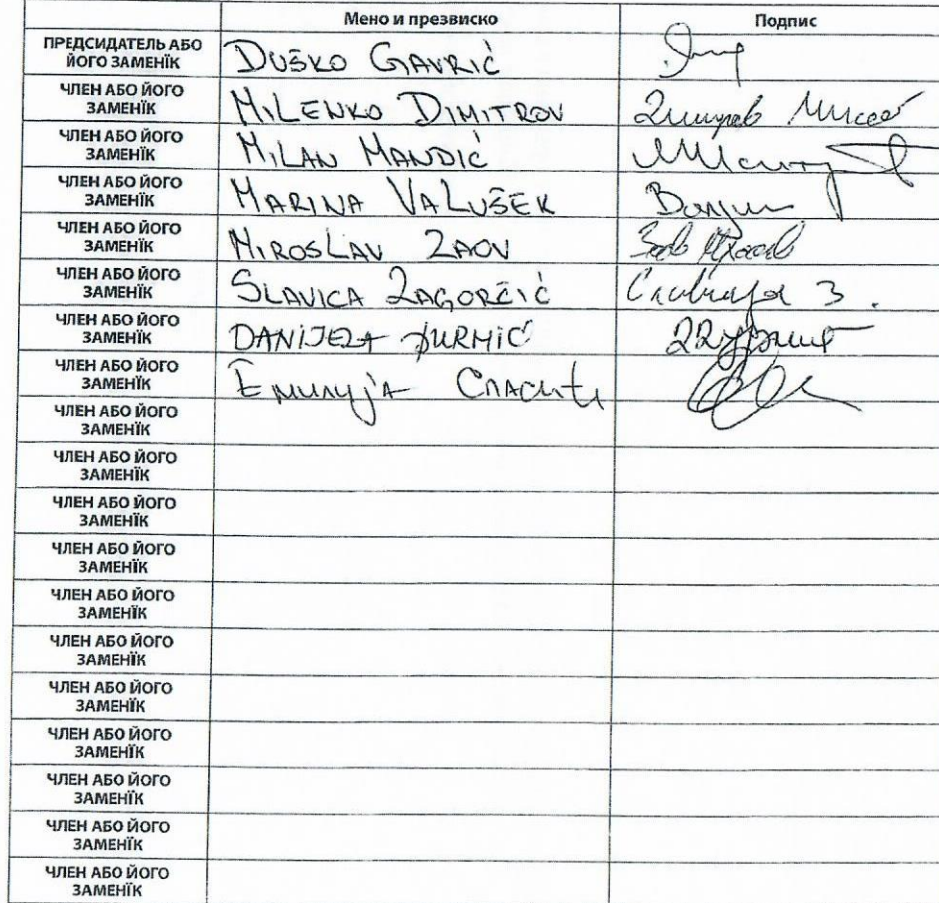 Мено и презвиско Подпис
ПРЕДСИДАТЕЛЬ АБО
ЙОГО ЗАМЕНЇК DUŠKO GAVRIĆ
ЧЛЕН АБО ЙОГО
ЗАМЕНЇК MILENKO DIMITROV
ЧЛЕН АБО ЙОГО
ЗАМЕНЇК MILAN MANDIĆ
ЧЛЕН АБО ЙОГО
ЗАМЕНЇК MARINA VALUŠEK
ЧЛЕН АБО ЙОГО
ЗАМЕНЇК MIROSLAV ZAOV
ЧЛЕН АБО ЙОГО
ЗАМЕНЇК SLAVICA ZAGORČIĆ З.
ЧЛЕН АБО ЙОГО
ЗАМЕНЇК DANIJELA ĐURMIĆ
ЧЛЕН АБО ЙОГО
ЗАМЕНЇК Емилија
ЧЛЕН АБО ЙОГО
ЗАМЕНЇК
ЧЛЕН АБО ЙОГО
ЗАМЕНЇК
ЧЛЕН АБО ЙОГО
ЗАМЕНЇК
ЧЛЕН АБО ЙОГО
ЗАМЕНЇК
ЧЛЕН АБО ЙОГО
ЗАМЕНЇК
ЧЛЕН АБО ЙОГО
ЗАМЕНЇК
ЧЛЕН АБО ЙОГО
ЗАМЕНЇК
ЧЛЕН АБО ЙОГО
ЗАМЕНЇК
ЧЛЕН АБО ЙОГО
ЗАМЕНЇК
ЧЛЕН АБО ЙОГО
ЗАМЕНЇК
ЧЛЕН АБО ЙОГО
ЗАМЕНЇК